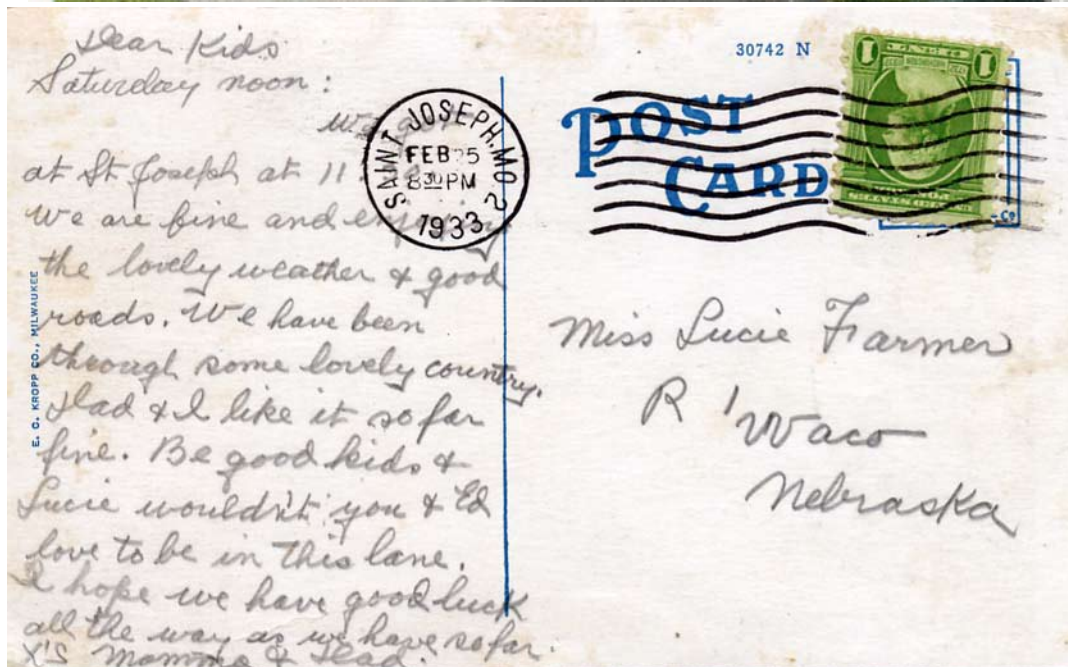 Dear Kids
Saturday noon:
we
at St Joseph at 11
We are fine and
the lovely weather & good
roads. We have been
through some lovely country.
Dad & I like it so far
fine. Be good kids &
Lucie wouldn't you & Ed
love to be in this lane.
I hope we have good luck
all the way as we have so far.
X'S Momma & Dad.
E. C. KROPP CO., MILWAUKEE
SAINT JOSEPH, MO. 2
FEB 25
8 30 PM
1933
30742 N
POST
CARD
1 1
Miss Lucie Farmer
R 1 Waco
Nebraska